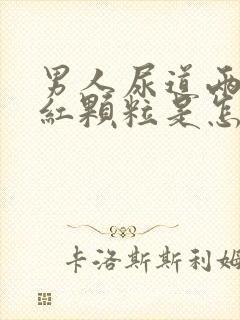 男人尿道兩
紅顆粒是怎
卡洛斯斯利姆